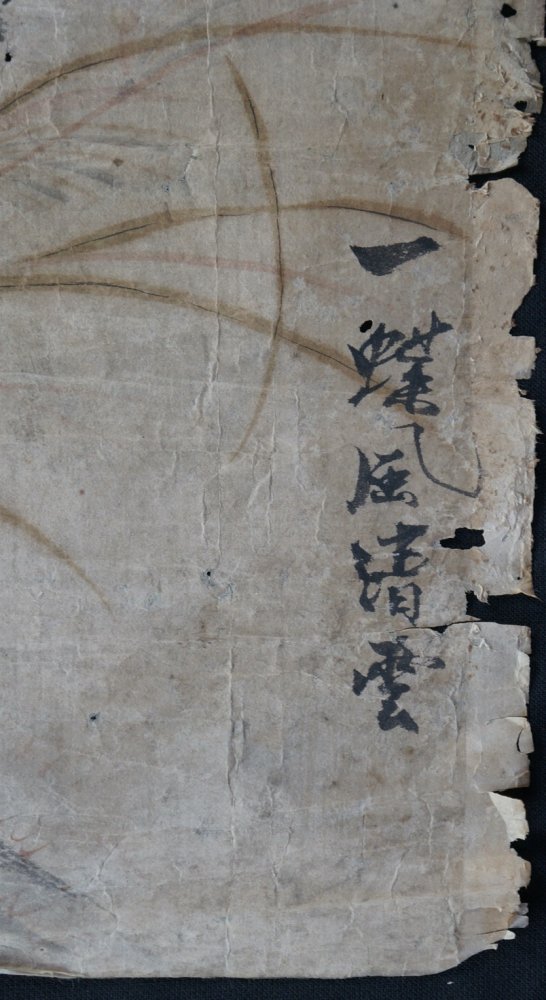 一蝶風清雲